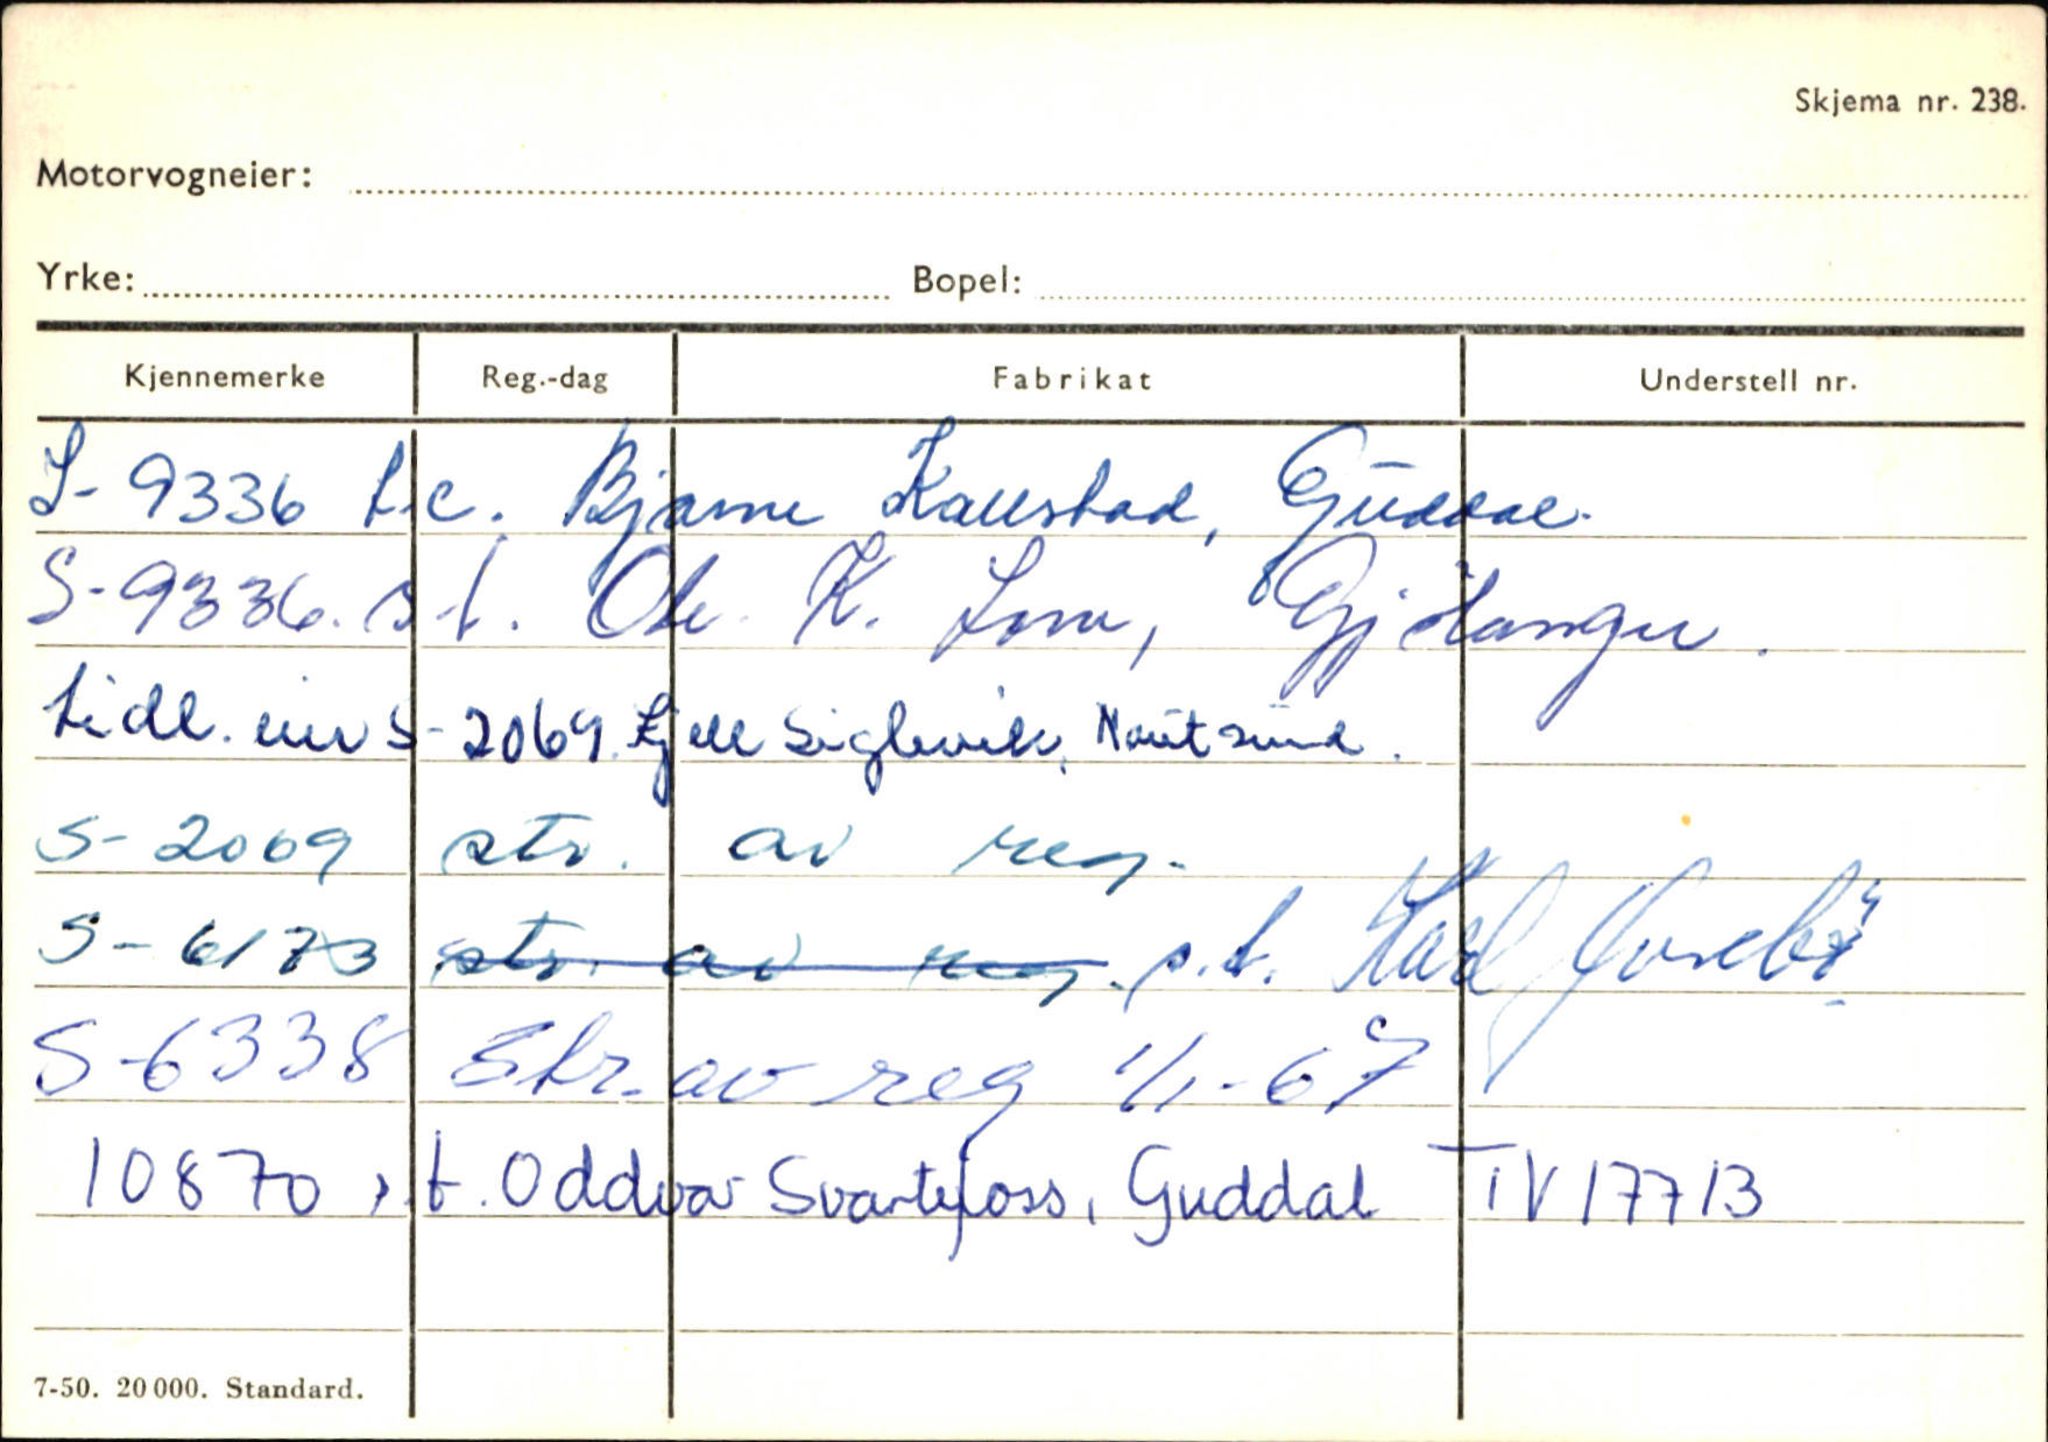 Skjema nr. 238.
Motorvogneier:
Yrke: Bopel:
Kjennemerke Reg.-dag Fabrikat Understell nr.
S-9336 t.c. Bjarne Kallstad, Guddal.
S-9336. s.t. Ole K. Lone, Gjölanger.
tidl. eier S-2069. Kjell Siglevik, Nautsund.
S-2069 str. av reg.
S-6173 str. av reg. s.t. Karl
S-6338 Str. av reg 1/1-67
10870 s.t. Oddvar Svartefoss, Guddal TV 17713
7-50. 20 000. Standard.